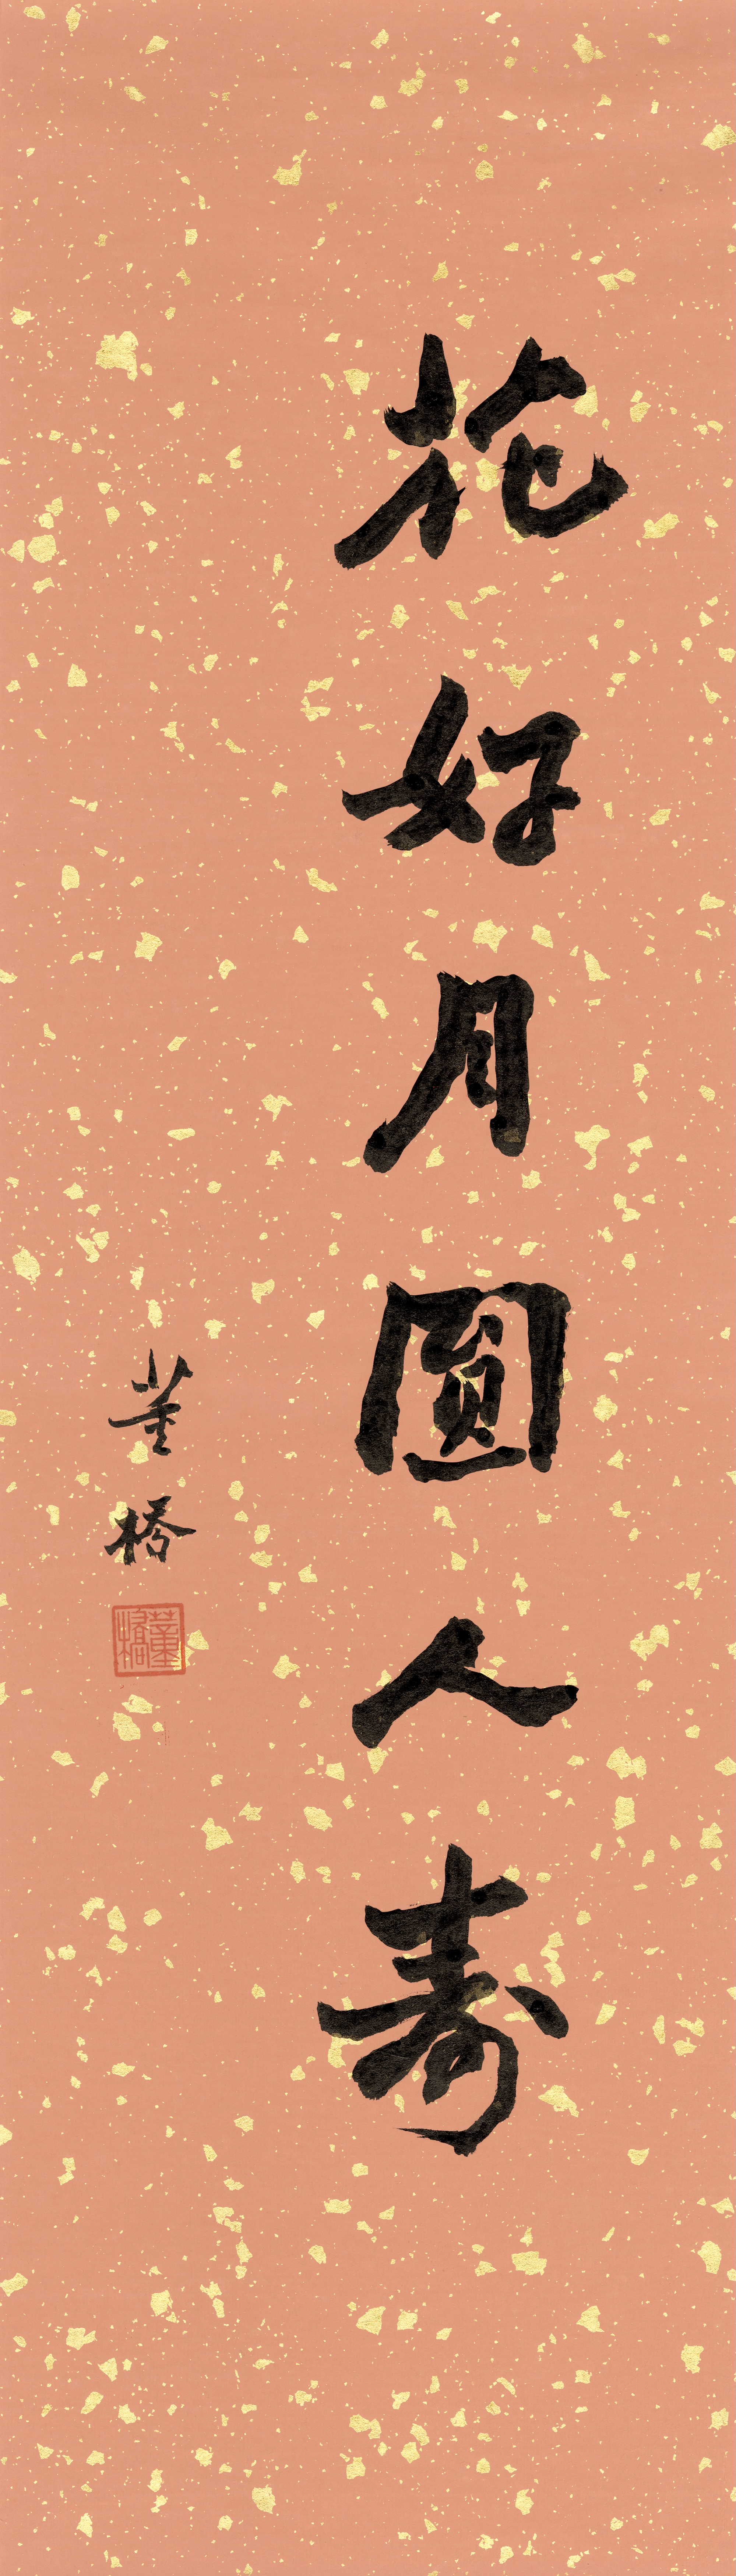 花好月圓人壽
董橋
董橋